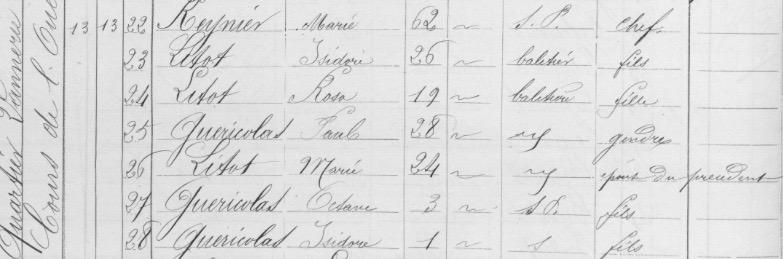 Quartier
Cours de l'
13 13 22 Reynier Marie 62 ~ s. P. chef
23 Litot Isidore 26 ~ fils
24 Litot Rosa 19 ~ fille
25 Quericolas Paul 28 ~ gendre
26 Litot Marie 24 ~ du precedent
27 Quericolas Octave 3 ~ s. P. fils
28 Quericolas Isidore 1 ~ s fils